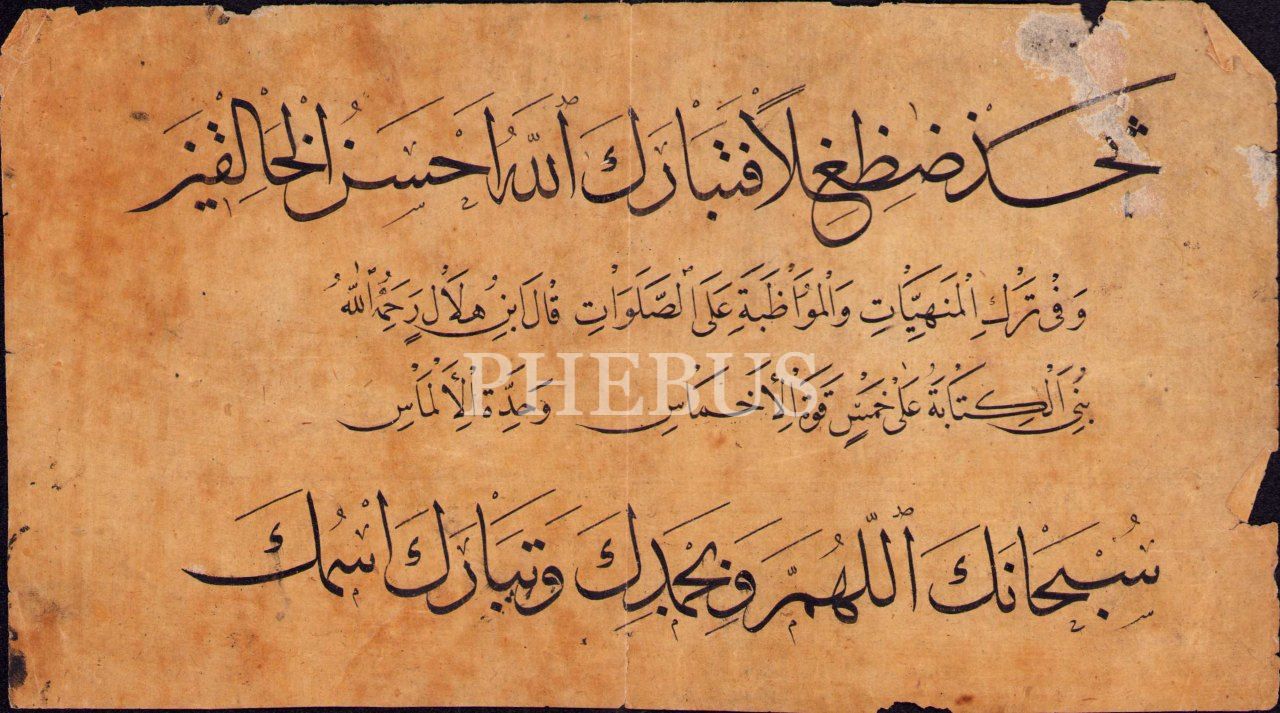 ثخذ ضظغلا فتبارك الله احسن الخالقين
وفى ترك المنهيات والمواظبة على الصلوات قال ابن هلال رحمه الله
بنى الكتابة على خمس قوة الأخماس وحدة الألماس
PHEBUS
سبحانك اللهم وبحمدك وتبارك اسمك